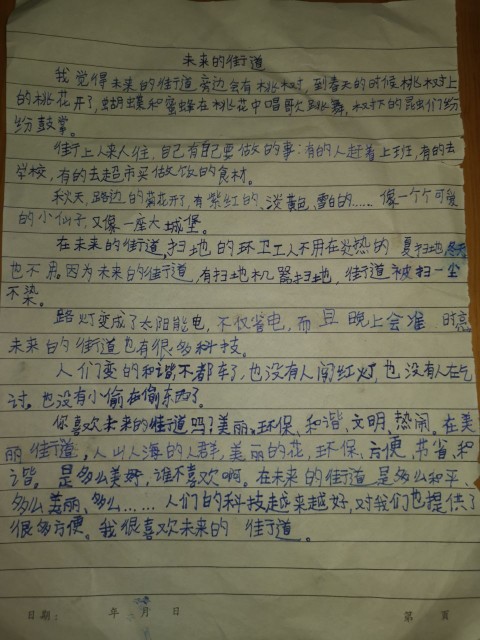 未来的街道
我觉得未来的街道旁边会有桃树，到春天的时候桃树上
的桃花开了，蝴蝶和蜜蜂在桃花中唱歌跳舞，树下的昆虫们纷
纷鼓掌。
街上人来人往，自己有自己要做的事：有的人赶着上班，有的去
学校，有的去超市买做饭的食材。
秋天，路边的菊花开了，有紫红的、淡黄色、雪白的……像一个个可爱
的小仙子，又像一座大城堡。
在未来的街道，扫地的环卫工人不用在炎热的夏扫地，冬天
也不用。因为未来的街道，有扫地机器扫地，街道被扫一尘
不染。
路灯变成了太阳能电，不仅省电，而且晚上会准时亮
未来的街道也有很多科技。
人们变的和谐不都车了，也没有人闯红灯，也没有人在乞
讨，也没有小偷在偷东西了。
你喜欢未来的街道吗？美丽、环保、和谐、文明、热闹。在美
丽街道，人山人海的人群，美丽的花，环保、方便、节省、和
谐。是多么美好，谁不喜欢啊。在未来的街道是多么和平、
多么美丽、多么……人们的科技越来越好，对我们也提供了
很多方便。我很喜欢未来的街道。
日期： 年 月 日 第 页